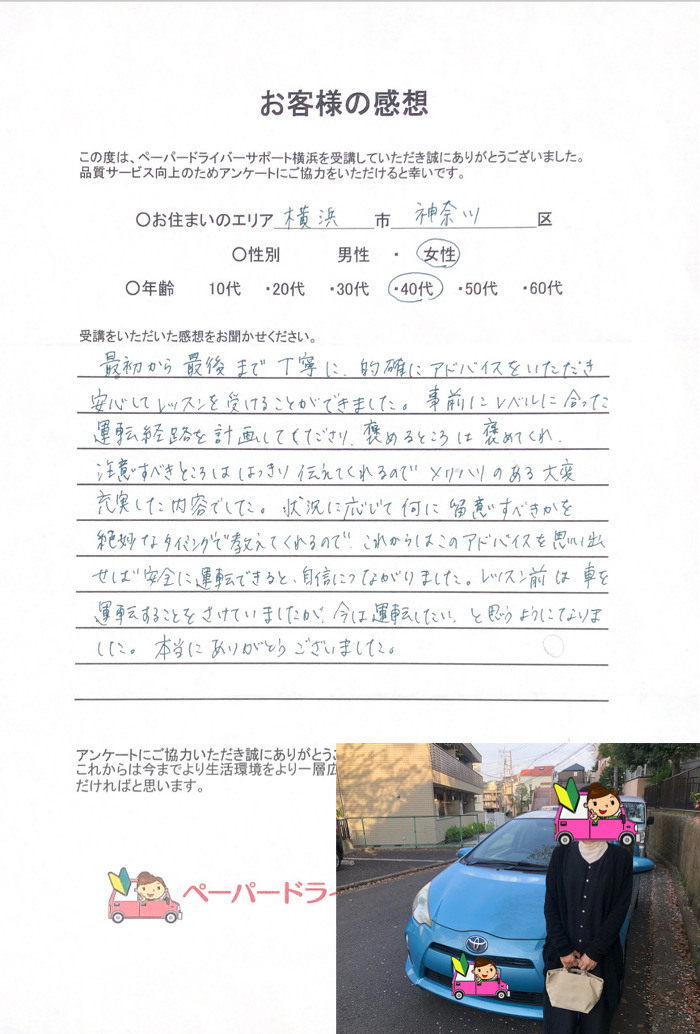 お客様の感想
この度は、ペーパードライバーサポート横浜を受講していただき誠にありがとうございました。
品質サービス向上のためアンケートにご協力をいただけると幸いです。
〇お住まいのエリア 横浜 市 神奈川 区
〇性別 男性 ・ 女性
〇年齢 10代 ・20代 ・30代 ・40代 ・50代 ・60代
受講をいただいた感想をお聞かせください。
最初から最後まで丁寧に、的確にアドバイスをいただき
安心してレッスンを受けることができました。事前にレベルに合った
運転経路を計画して下さり、褒めるところは褒めてくれ、
注意すべきところははっきり伝えてくれるのでメリハリのある大変
充実した内容でした。状況に応じて何に留意すべきかを
絶妙なタイミングで教えてくれるので、これからはこのアドバイスを思い出
せば安全に運転できると、自信につながりました。レッスン前は車を
運転することをさけていましたが、今は運転したい、と思うようになりま
した。本当にありがとうございました。
アンケートにご協力いただき誠にありがとうご
これからは今までより生活環境をより一層広
だければと思います。
ペーパードライ